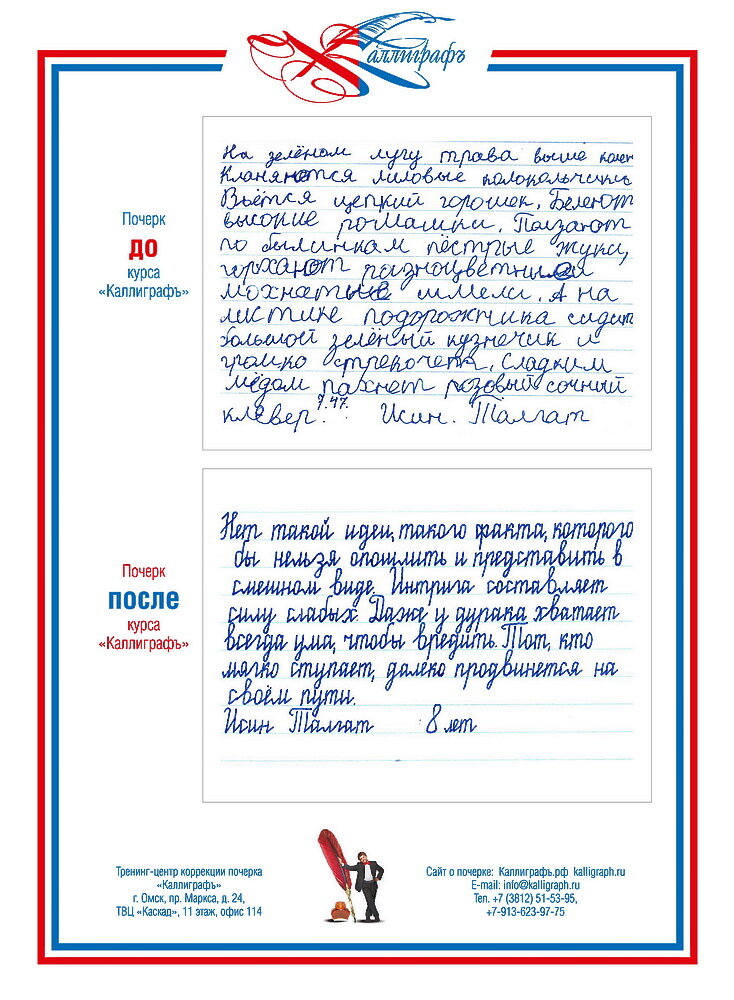 Каллиграфъ
Почерк
до
курса
«Каллиграфъ»
На зелёном лугу трава выше колен
Кланяются лиловые колокольчики
Вьётся цепкий горошек. Белеют
высокие ромашки. Ползают
по былинкам пёстрые жуки,
порхают разноцветные
мохнатые шмели. А на
листике подорожника сидит
большой зелёный кузнечик и
громко стрекочет. Сладким
мёдом пахнет розовый сочный
клевер. 7.47. Исин. Талгат
Почерк
после
курса
«Каллиграфъ»
Нет такой идеи, такого факта, которого
бы нельзя опошлить и представить в
смешном виде. Интрига составляет
силу слабых. Даже у дурака хватает
всегда ума, чтобы вредить. Тот, кто
мягко ступает, далеко продвинется на
своём пути.
Исин Талгат 8 лет
Тренинг-центр коррекции почерка
«Каллиграфъ»
г. Омск, пр. Маркса, д. 24,
ТВЦ «Каскад», 11 этаж, офис 114
Сайт о почерке: Каллиграфъ.рф kalligraph.ru
E-mail: info@kalligraph.ru
Тел. +7 (3812) 51-53-95,
+7-913-623-97-75